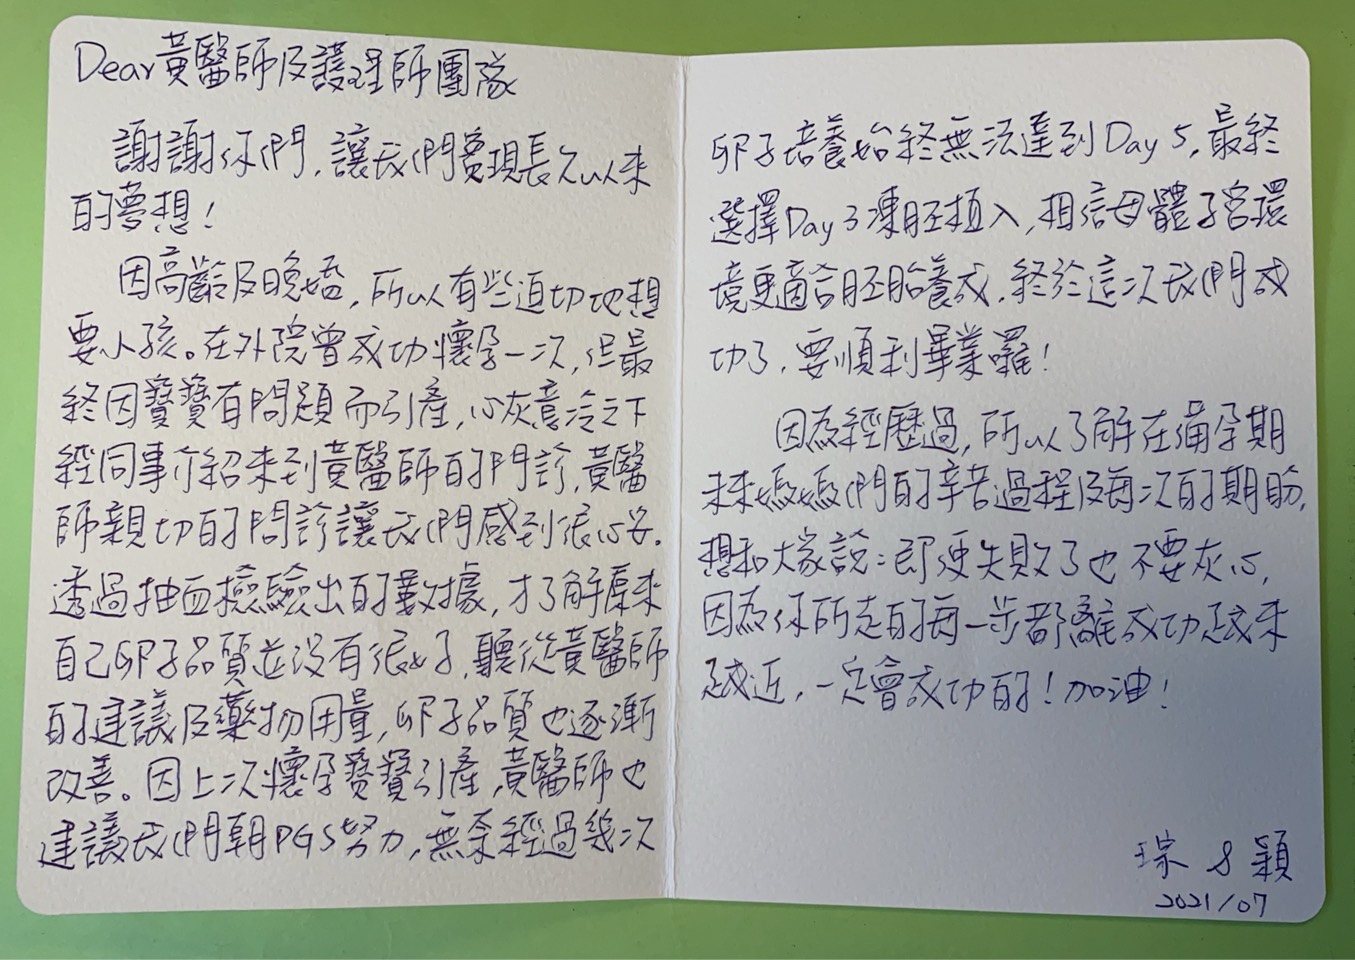 Dear黃醫師及護理師團隊
謝謝你們,讓我們實現長久以來
的夢想!
因高齡及晚婚,所以有些迫切地想
要小孩。在外院曾成功懷孕一次,但最
終因寶寶有問題而引產,心灰意冷之下
經同事介紹來到黃醫師的門診,黃醫
師親切的問診讓我們感到很心安.
透過抽血檢驗出的數據,才了解原來
自己卵子品質並沒有很好,聽從黃醫師
的建議及藥物用量,卵子品質也逐漸
改善。因上次懷孕寶寶引產,黃醫師也
建議我們朝PGS努力,無奈經過幾次
卵子培養始終無法達到Day 5,最終
選擇Day 3凍胚植入,相信母體子宮環
境更適合胚胎養成,終於這次我們成
功了,要順利畢業囉!
因為經歷過,所以了解在備孕期
未來媽媽們的辛苦過程及每次的期盼,
想和大家說:即使失敗了也不要灰心,
因為你所走的每一步都離成功越來
越近,一定會成功的!加油!
琮 & 穎
2021/07